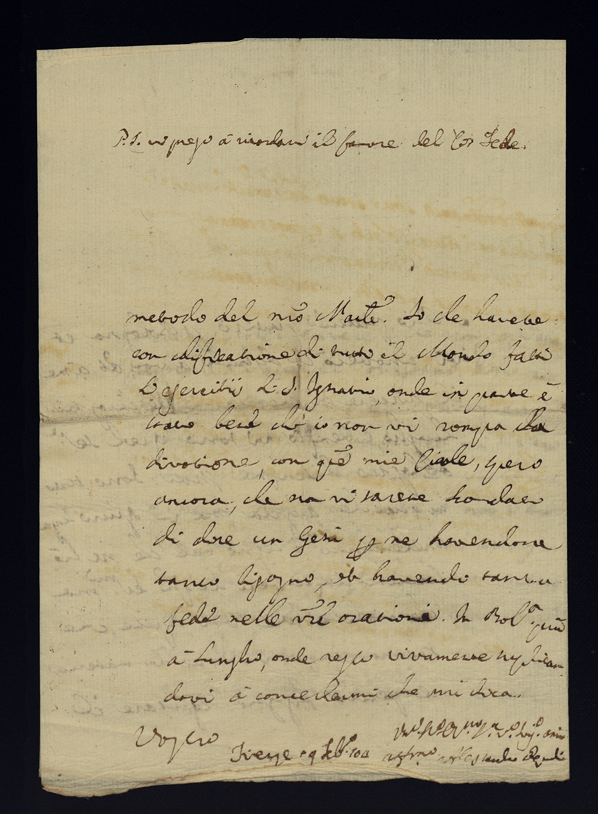 P.S. vi prego à ricordarvi il favore del Co: Fede.
metodo del nr̃o Maest.º So che havete
con edificatione di tutto il Mondo fatti
l'esercitii di S. Ignatio, onde in parte è
stato bene ch' io non vi rompa la
divotione, con que mie Ciarle, spero
ancora, che non vi sarete scordato
di dire un Gesù p me havendone
tanto bisogno, et havendo tanta
fede nelle vr̃e orationi. In Bol.ª
à Luglio, onde resto vivamente
dovi à concedermi che mi dica.
Vostro
Firenze 9 Feb.º